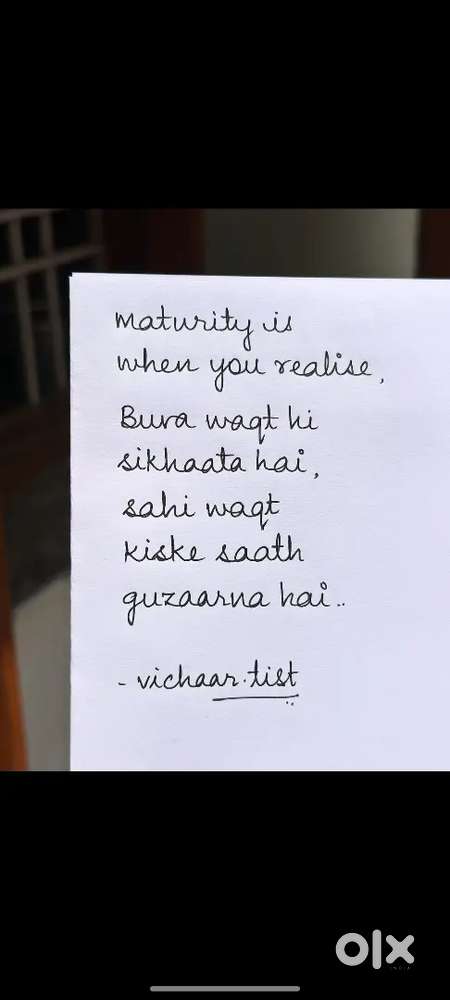 maturity is
when you realise,
Bura waqt hi
sikhaata hai,
sahi waqt
kiske saath
guzaarna hai..
- vichaar.tist
olx
INDIA